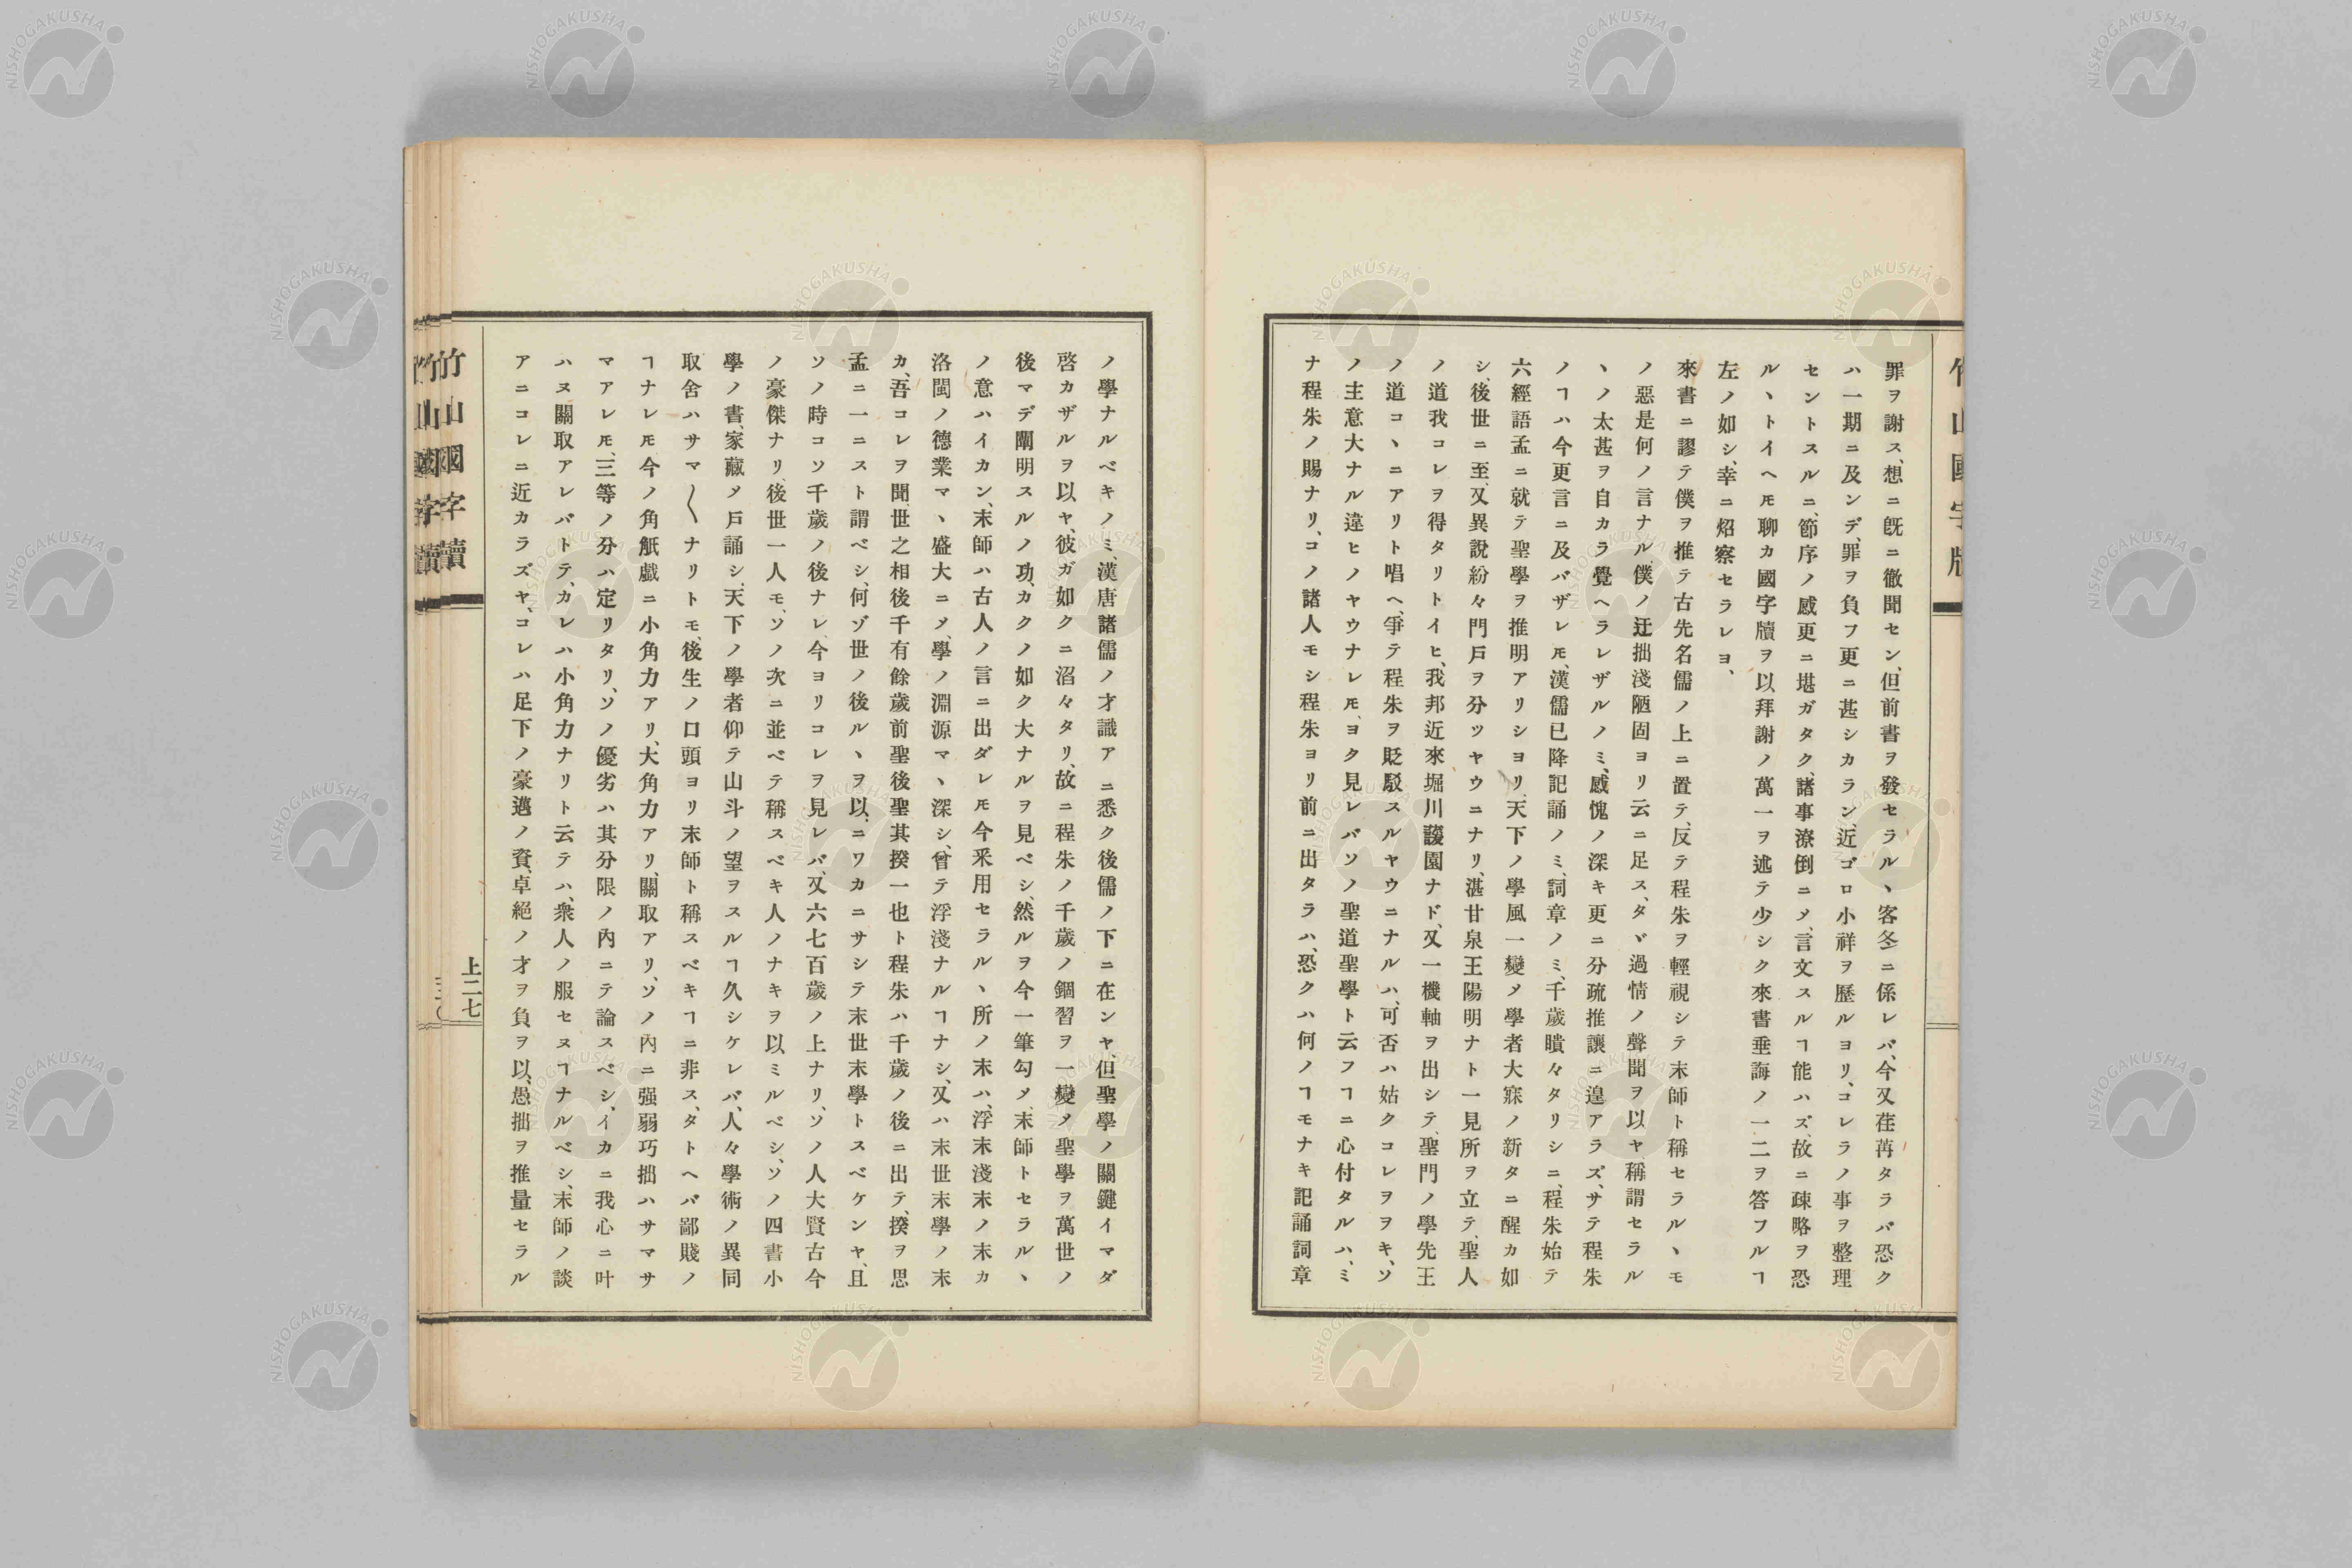 罪ヲ謝ス、想ニ既ニ徹聞セン、但前書ヲ發セラルヽ客冬ニ係レバ、今又荏苒タラバ恐ク
ハ一期ニ及ンデ、罪ヲ負フ更ニ甚シカラン、近ゴロ小祥ヲ歷ルヨリ、コレラノ事ヲ整理
セントスルニ、節序ノ感更ニ堪ガタク、諸事潦倒ニ〆、言文スルヿ能ハズ、故ニ疎略ヲ恐
ルヽトイヘ𪜈聊カ國字牘ヲ以拜謝ノ萬一ヲ述テ少シク來書垂誨ノ一二ヲ答フルヿ
左ノ如シ、幸ニ炤察セラレヨ、
來書ニ謬テ僕ヲ推テ古先名儒ノ上ニ置テ、反テ程朱ヲ輕視シテ末師ト稱セラルヽモ
ノ惡是何ノ言ナル、僕ノ迂拙淺陋固ヨリ云ニ足ス、タヾ過情ノ聲聞ヲ以ヤ、稱謂セラル
ヽノ太甚ヲ自カラ覺ヘラレザルノミ、感愧ノ深キ更ニ分疏推讓ニ遑アラズ、サテ程朱
ノヿハ今更言ニ及バザレ𪜈、漢儒已降記誦ノミ、詞章ノミ、千歲瞶々タリシニ、程朱始テ
六經語孟ニ就テ聖學ヲ推明アリシヨリ、天下ノ學風一變〆學者大寐ノ新タニ醒カ如
シ、後世ニ至、又異說紛々門戶ヲ分ツヤウニナリ、湛甘泉王陽明ナト一見所ヲ立テ、聖人
ノ道我コレヲ得タリトイヒ、我邦近來堀川蘐園ナド、又一機軸ヲ出シテ、聖門ノ學先王
ノ道コヽニアリト唱ヘ、爭テ程朱ヲ貶駁スルヤウニナルハ、可否ハ姑クコレヲヲキ、ソ
ノ主意大ナル違ヒノヤウナレ𪜈、ヨク見レバソノ聖道聖學ト云フヿニ心付タルハ、ミ
ナ程朱ノ賜ナリ、コノ諸人モシ程朱ヨリ前ニ出タラハ、恐クハ何ノヿモナキ記誦詞章
ノ學ナルベキノミ、漢唐諸儒ノ才識アニ悉ク後儒ノ下ニ在ンヤ、但聖學ノ關鍵イマダ
啓カザルヲ以ヤ、彼ガ如クニ滔々タリ、故ニ程朱ノ千歲ノ錮習ヲ一變〆聖學ヲ萬世ノ
後マデ闡明スルノ功、カクノ如ク大ナルヲ見ベシ、然ルヲ今一筆勾〆、末師トセラルヽ
ノ意ハイカン、末師ハ古人ノ言ニ出ダレ𪜈今釆用セラルヽ所ノ末ハ、浮末淺末ノ末カ
洛閩ノ德業マヽ盛大ニ〆、學ノ淵源マヽ深シ、曾テ浮淺ナルヿナシ、又ハ末世末學ノ末
カ、吾コレヲ聞、世之相後千有餘歲前聖後聖其揆一也ト程朱ハ千歲ノ後ニ出テ、揆ヲ思
孟ニ一ニスト謂ベシ、何ゾ世ノ後ルヽヲ以、ニワカニサシテ末世末學トスベケンヤ、且
ソノ時コソ千歲ノ後ナレ、今ヨリコレヲ見レバ、又六七百歲ノ上ナリ、ソノ人大賢古今
ノ豪傑ナリ、後世一人モ、ソノ次ニ並ベテ稱スベキ人ノナキヲ以ミルベシ、ソノ四書小
學ノ書、家藏〆戶誦シ、天下ノ學者仰テ山斗ノ望ヲスルヿ久シケレバ、人々學術ノ異同
取舍ハサマ〱ナリトモ、後生ノ口頭ヨリ末師ト稱スベキヿニ非ス、タトヘバ鄙賤ノ
ヿナレ𪜈今ノ角觝戲ニ小角力アリ、大角力アリ、關取アリ、ソノ內ニ强弱巧拙ハサマサ
マアレ𪜈、三等ノ分ハ定リタリ、ソノ優劣ハ其分限ノ內ニテ論スベシ、イカニ我心ニ叶
ハヌ關取アレバトテ、カレハ小角力ナリト云テハ、衆人ノ服セヌヿナルベシ、末師ノ談
アニコレニ近カラズヤ、コレハ足下ノ豪邁ノ資、卓絕ノ才ヲ負ヲ以、愚拙ヲ推量セラル
竹山國字牘
上二七